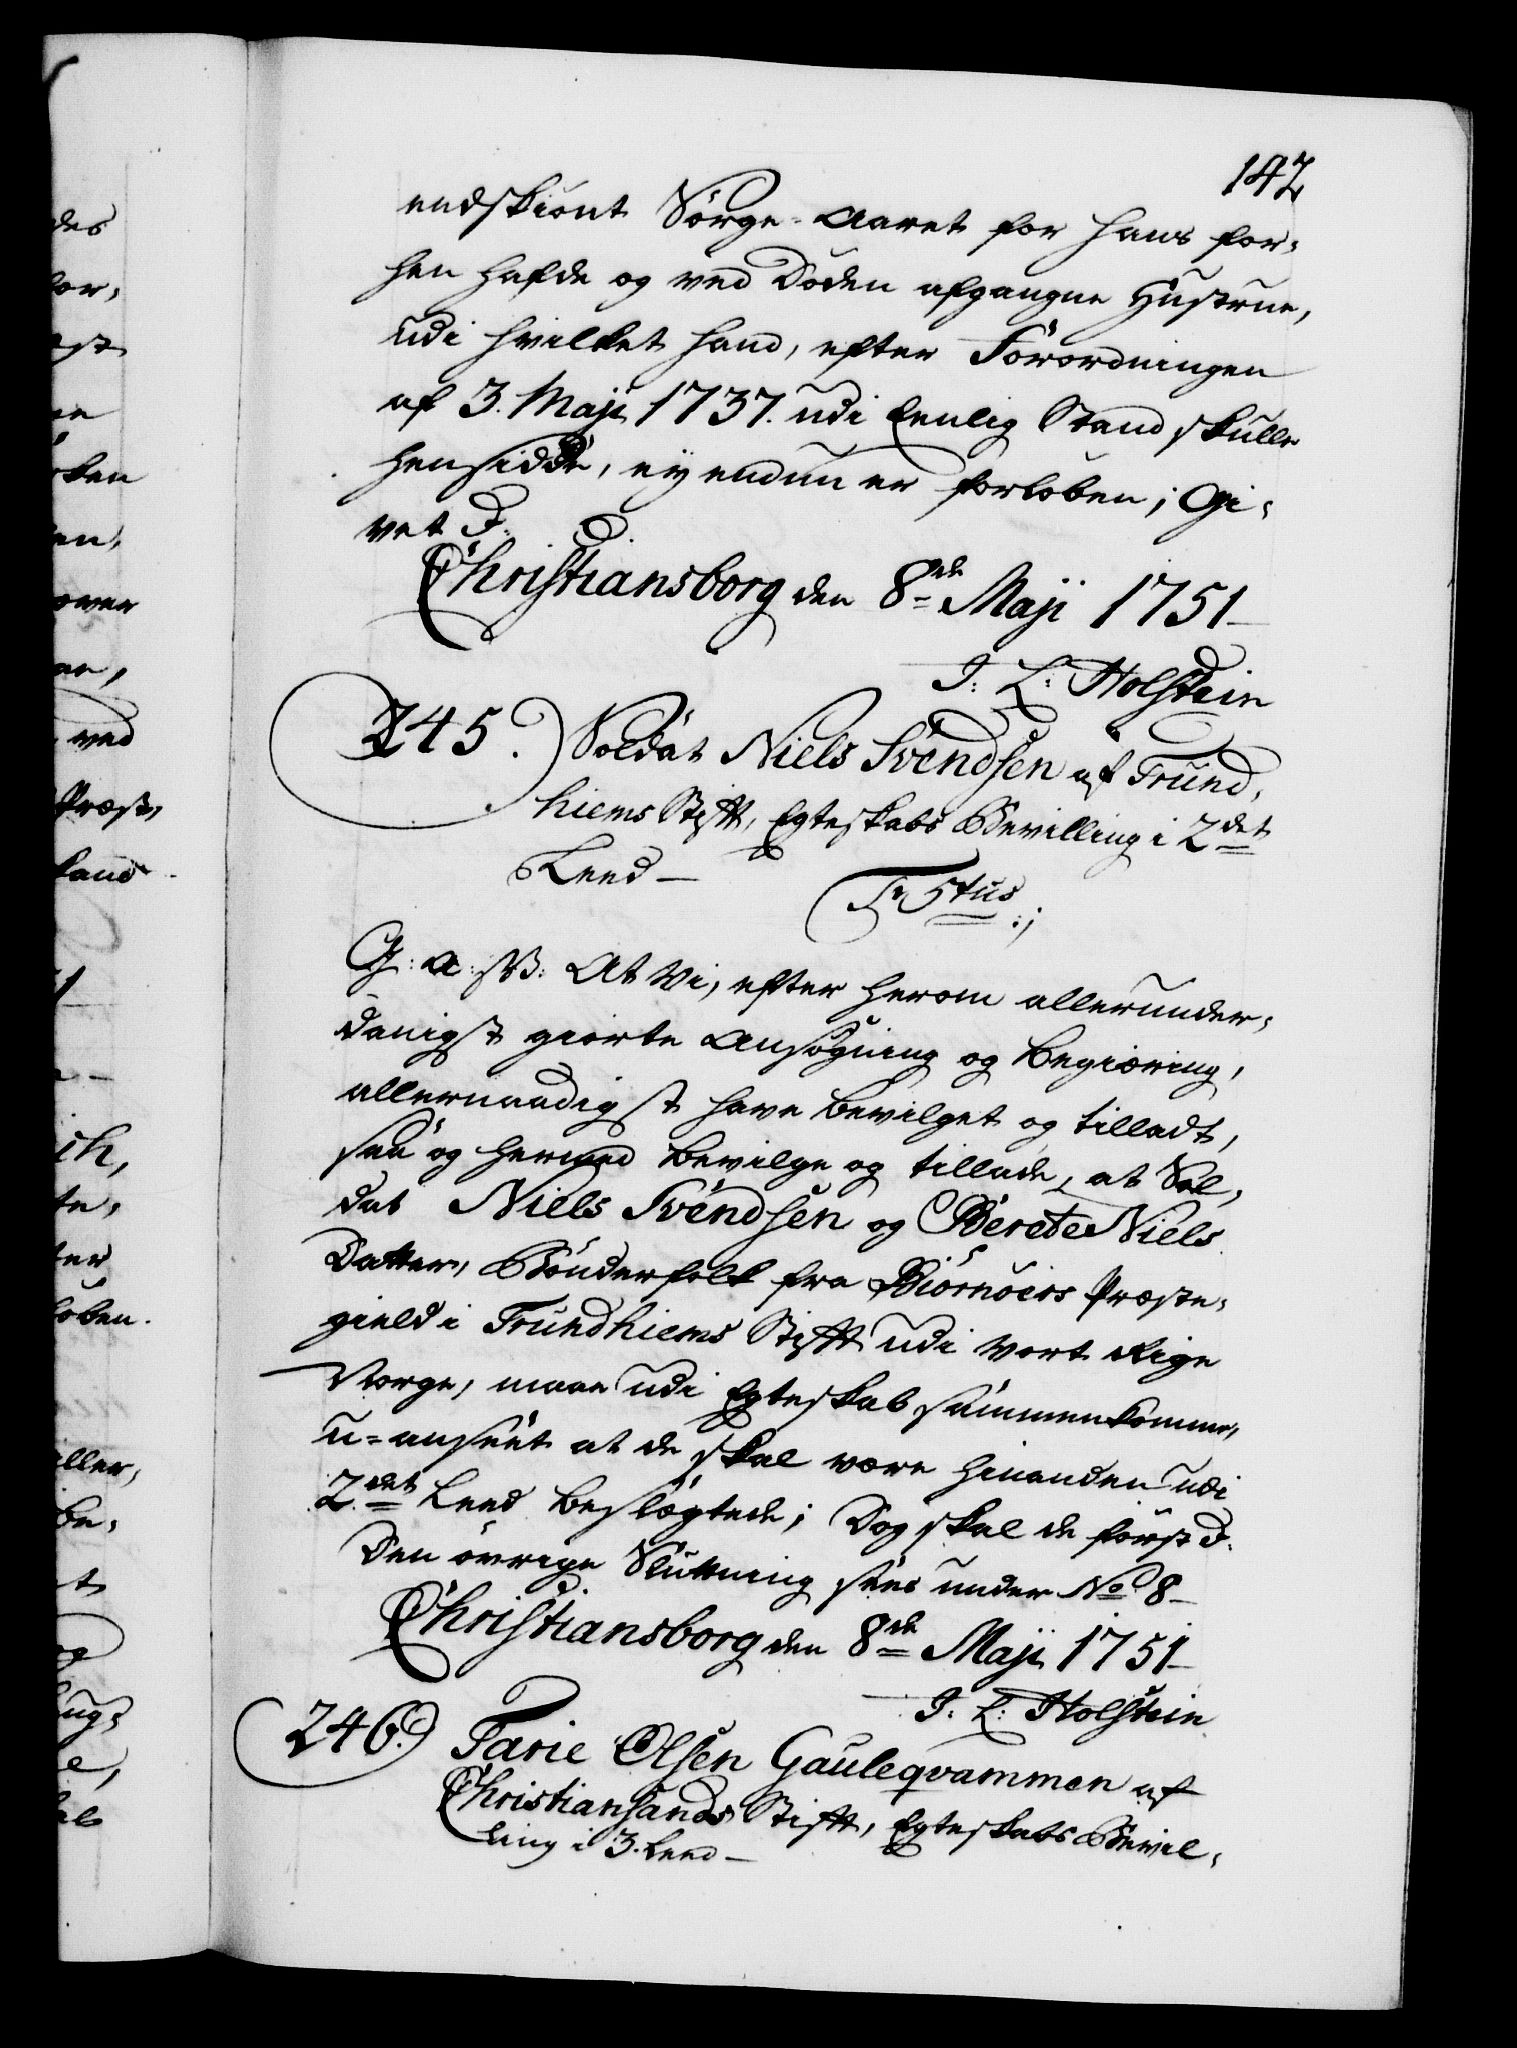 142
endskiönt Sörge-Aaret for hans for-
hen hafde og ved Döden afgangne Hustrue,
udi hvilket hand, efter Forordningen
af 3. Maji 1737. udi Eenlig Stand skulle
hensidde, ey endnu er forloben; Gi-
vet &:
Christiansborg den 8de Maji 1751
J: L: Holstein
245. Soldat Niels Svendsen af Trund,
hiems Stift, Egteskabs Bevilling i 2det
Leed —
G: A: V: At Vi, efter herom allerunder-
danigst giorte Ansögning og Begiæring,
allernaadigst have bevilget og tilladt,
saa og hermed bevilge og tillade, at Sol-
dat Niels Svendsen og Berete Niels
Datter, Bönderfolk fra Biörnöers Præste-
gield i Trundhiems Stift udi Vort Rige
Norge, maae udi Egteskab sammenkomme,
u-anseet at de skal være hinanden udi
2det Leed beslögtede; Dog skal de först &:
Den övrige Slutning sees under No 8
Christiansborg den 8de Maji 1751
J: L: Holstein
246. Tarie Olsen Gauleqvammen af
Christiansands Stift, Egteskabs Bevil-
ling i 3. Leed —
des
for,
ken
over
ved
Præst,
kand
ich,
te,
ter
loben.
iller,
be,
et
og
e,